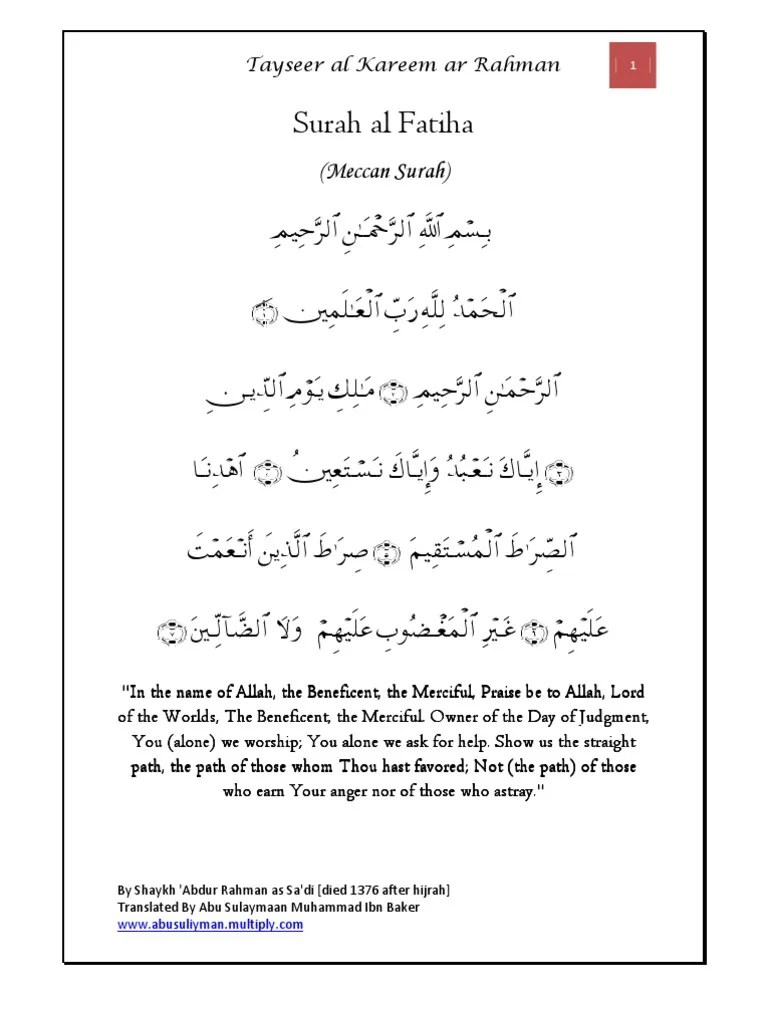 Tayseer al Kareem ar Rahman
1
Surah al Fatiha
(Meccan Surah)
بِسْمِ ٱللَّهِ ٱلرَّحْمَـٰنِ ٱلرَّحِيمِ
ٱلْحَمْدُ لِلَّهِ رَبِّ ٱلْعَـٰلَمِينَ ﴿١﴾
ٱلرَّحْمَـٰنِ ٱلرَّحِيمِ ﴿٢﴾ مَـٰلِكِ يَوْمِ ٱلدِّينِ
﴿٣﴾ إِيَّاكَ نَعْبُدُ وَإِيَّاكَ نَسْتَعِينُ ﴿٤﴾ ٱهْدِنَا
ٱلصِّرَٰطَ ٱلْمُسْتَقِيمَ ﴿٥﴾ صِرَٰطَ ٱلَّذِينَ أَنْعَمْتَ
عَلَيْهِمْ ﴿٦﴾ غَيْرِ ٱلْمَغْضُوبِ عَلَيْهِمْ وَلَا ٱلضَّآلِّينَ ﴿٧﴾
"In the name of Allah, the Beneficent, the Merciful, Praise be to Allah, Lord
of the Worlds, The Beneficent, the Merciful. Owner of the Day of Judgment,
You (alone) we worship; You alone we ask for help. Show us the straight
path, the path of those whom Thou hast favored; Not (the path) of those
who earn Your anger nor of those who astray."
By Shaykh 'Abdur Rahman as Sa'di [died 1376 after hijrah]
Translated By Abu Sulaymaan Muhammad Ibn Baker
www.abusuliyman.multiply.com